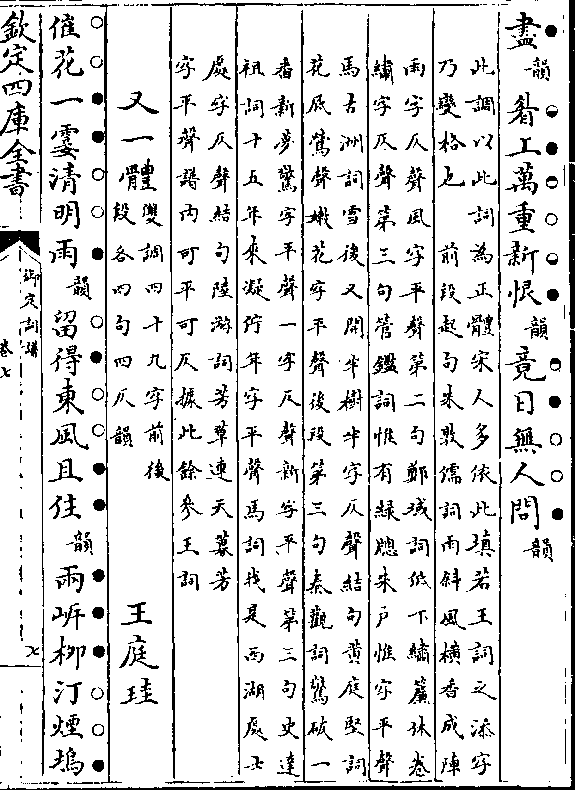 盡韻 眉上萬重新恨韻 竟日無人問韻
此調以此詞為正體宋人多依此填若王詞之添字
乃變格也 前段起句朱敦儒詞雨斜風橫香成陣
雨字仄聲風字平聲第二句鄭域詞低下繡簾休卷
繡字仄聲第三句管鑑詞惟有綠牕朱戶惟字平聲
馬古洲詞雪後又開半樹半字仄聲結句黄庭堅詞
花底鶯聲嫩花字平聲後段第三句秦觀詞驚破一
番新夢驚字平聲一字仄聲新字平聲第三句史達
祖詞十五年來凝佇年字平聲馬詞找是西湖處士
處字仄聲結句陸游詞芳草連天暮芳
字平聲譜内可平可仄據此餘參王詞
又一體 雙調四十九字前後
段各四句四仄韻 王庭珪
催花一霎清明雨韻 留得東風且住韻 兩岍柳汀煙塢
欽定四庫全書
御定詞譜
卷七
七